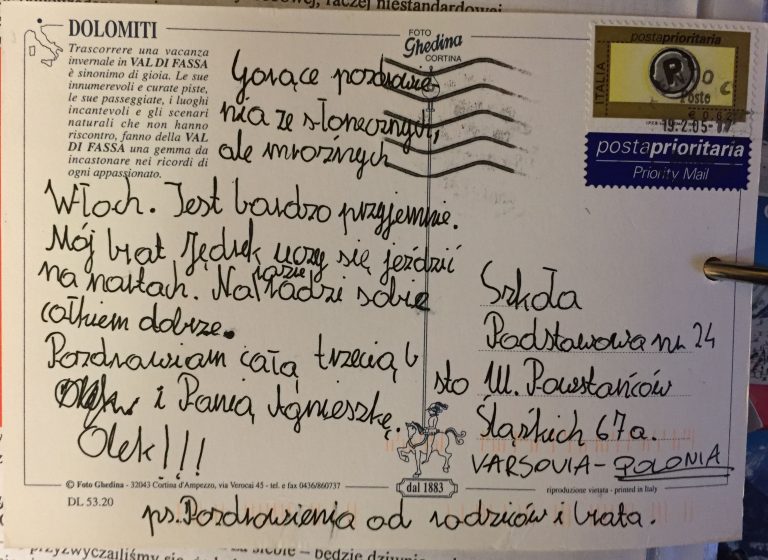 DOLOMITI
Trascorrere una vacanza
invernale in VAL DI FASSA
è sinonimo di gioia. Le sue
innumerevoli e curate piste,
le sue passeggiate, i luoghi
incantevoli e gli scenari
naturali che non hanno
riscontro, fanno della VAL
DI FASSA una gemma da
incastonare nei ricordi di
ogni appassionato.
FOTO
Ghedina
CORTINA
ITALIA
postaprioritaria
P
€ 0,62
19.2.05-17
postaprioritaria
Priority Mail
Gorące pozdrowie
nia ze słonecznych,
ale mroźnych
Włoch. Jest bardzo przyjemnie.
Mój brat Jędrek uczy się jeździć
na nartach. Na razie radzi sobie
całkiem dobrze.
Pozdrawiam całą trzecią b
i Panią Agnieszkę.
Olek!!!
Szkoła
Podstawowa nr 24
sto Ul. Powstańców
Śląskich 67a.
VARSOVIA - POLONIA
© Foto Ghedina - 32043 Cortina d'Ampezzo, via Verocai 45 - tel. e fax 0436/860737
dal 1883
riproduzione vietata - printed in Italy
DL 53.20
ps. Pozdrowienia od rodziców i brata.